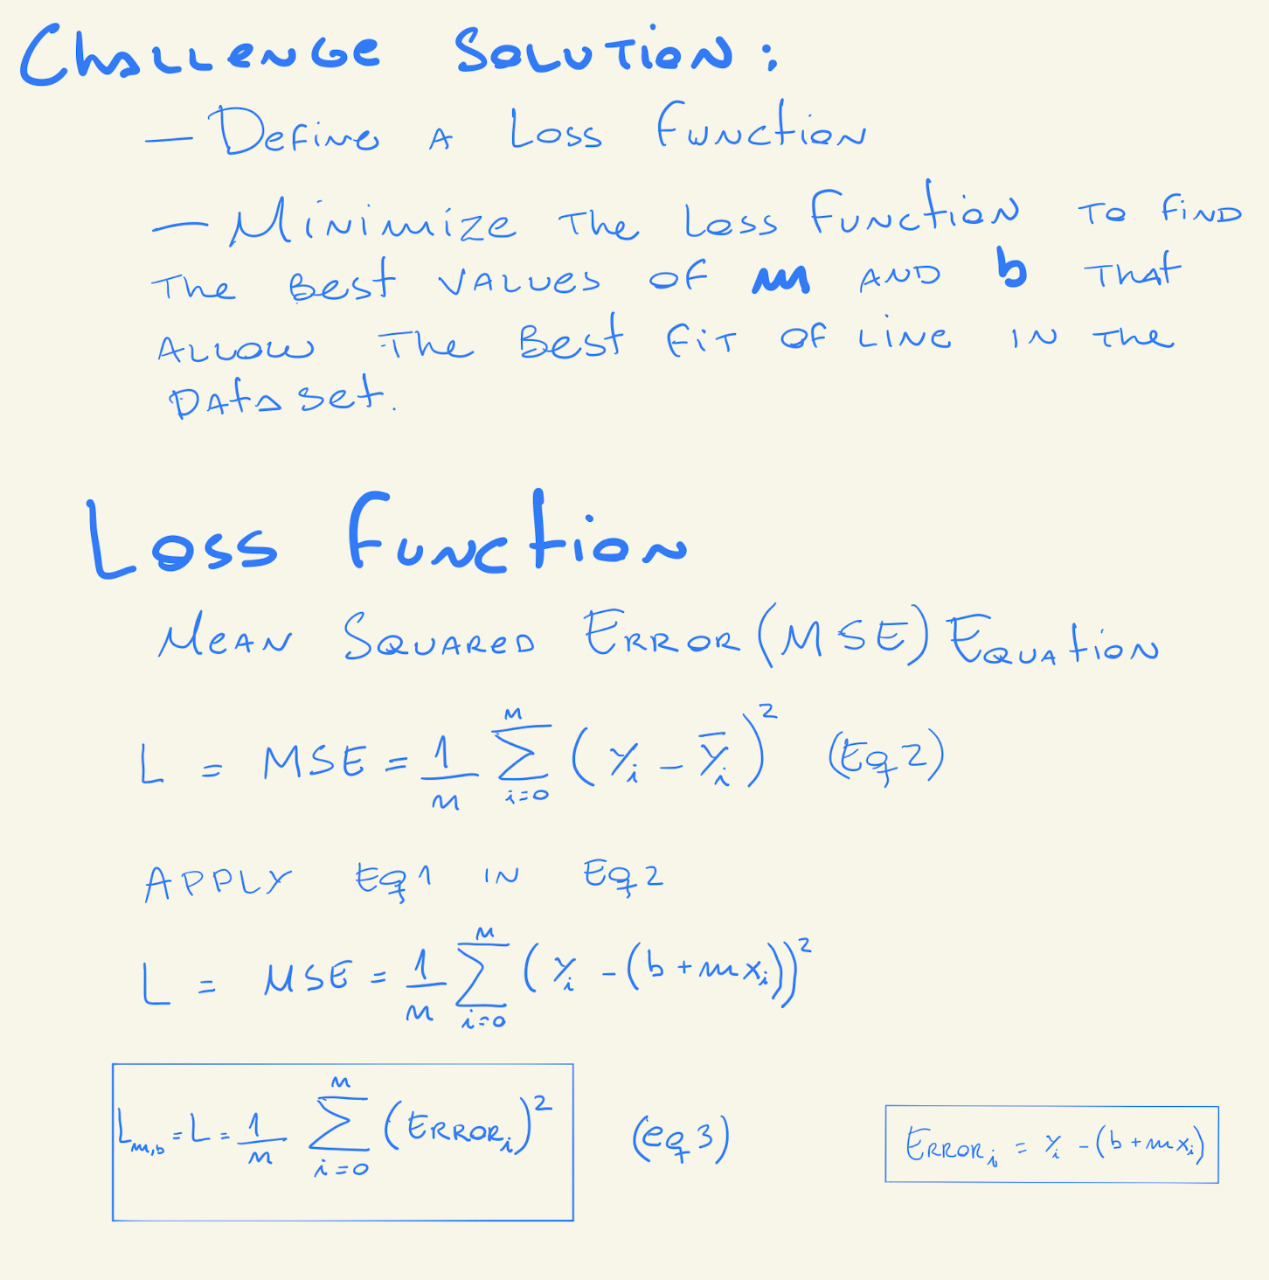 Challenge Solution:
— Define a Loss Function
— Minimize the Loss Function to find
the Best values of m and b that
allow the Best fit of line in the
Dataset.
Loss Function
Mean Squared Error (MSE) Equation
L = MSE = 1/n ∑_{i=0}^{n} (y_i - ȳ_i)² (Eq 2)
Apply Eq 1 in Eq 2
L = MSE = 1/n ∑_{i=0}^{n} (y_i - (b + mx_i))²
L_{m,b} = L = 1/n ∑_{i=0}^{n} (Error_i)² (eq 3) Error_i = y_i - (b + mx_i)